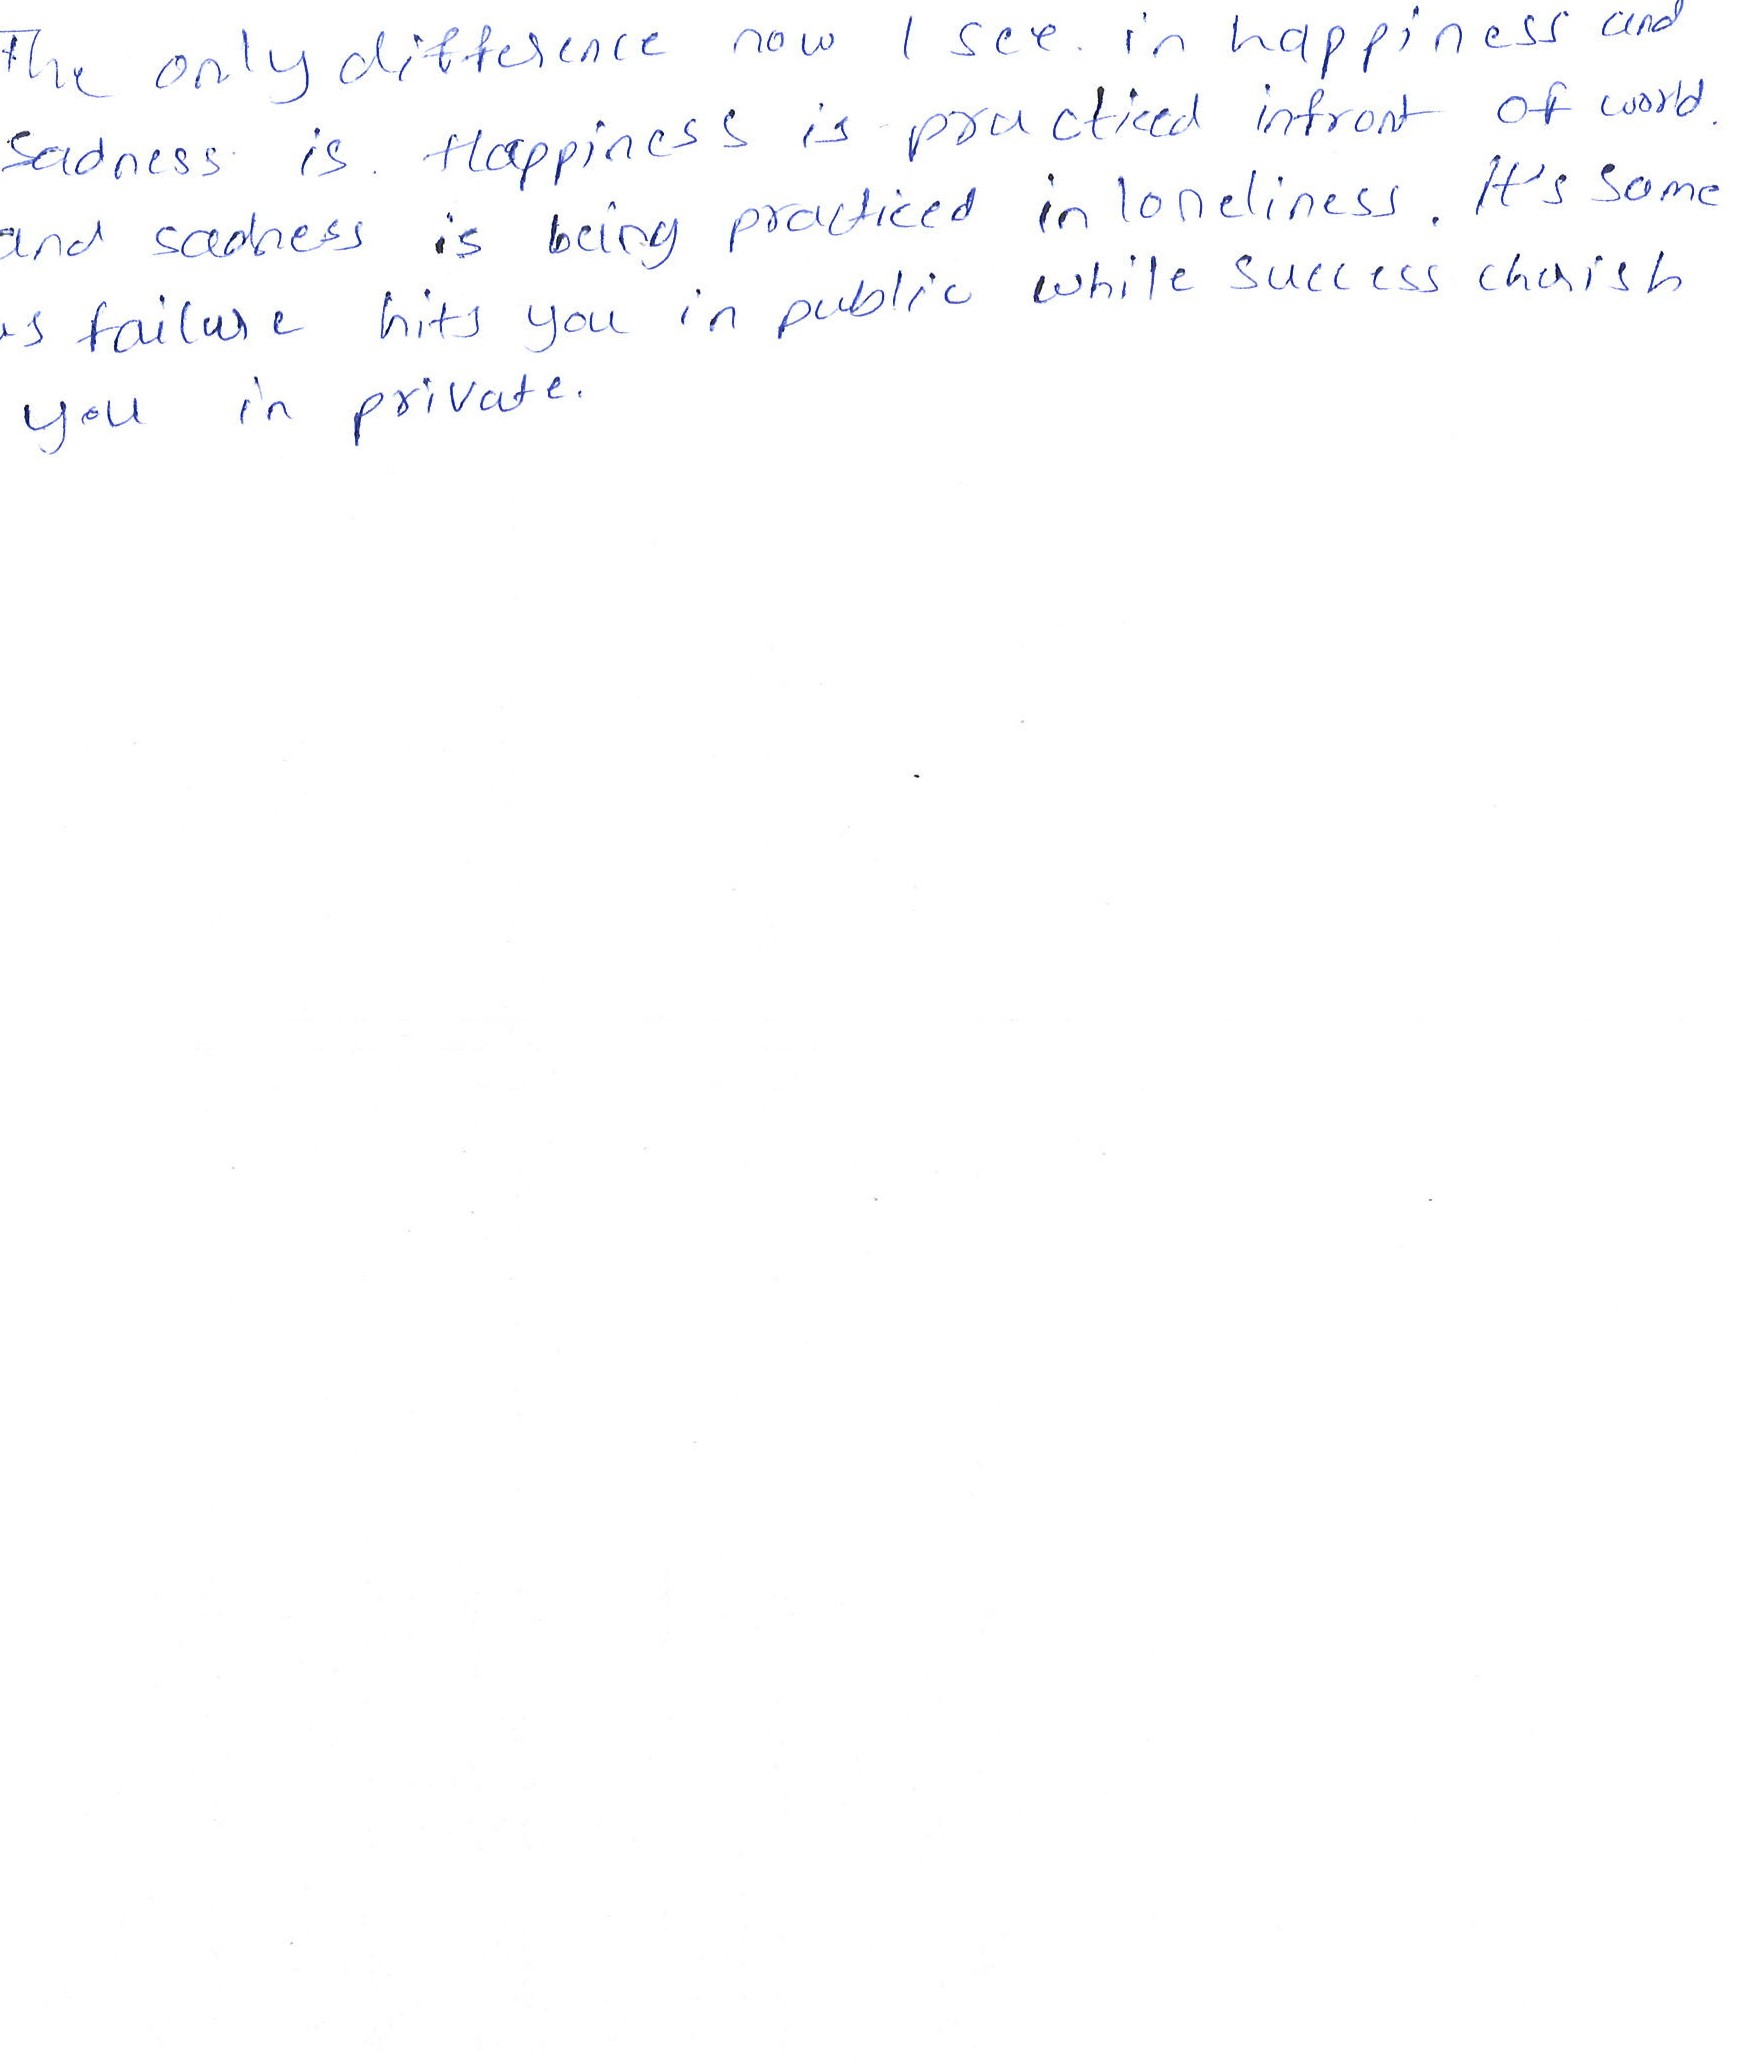 The only difference now I see. in happiness and
sadness is. Happiness is practiced infront of world.
and sadness is being practiced in loneliness. It's same
as failure hits you in public while success cherish
you in private.